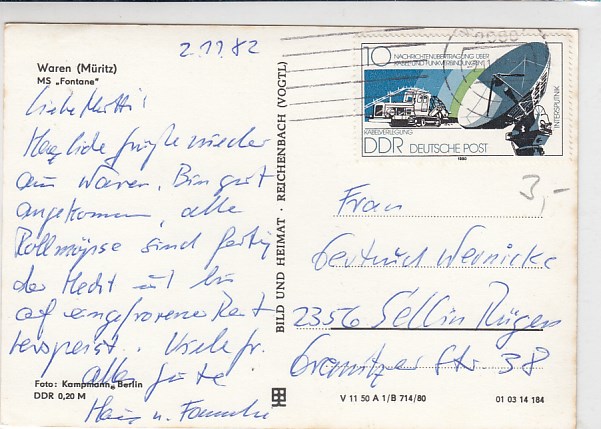 2.11.82
Waren (Müritz)
MS „Fontane"
Liebe Mutti!
Herzliche Grüße wieder
aus Waren. Bin gut
angekommen, alle
Rollmöpse sind fertig
der Hecht ist bis
auf eingefrorenen Rest
verspeist. Viele Gr.
alles Gute!
Hans u.
Foto: Kampmann, Berlin
DDR 0,20 M
BILD UND HEIMAT · REICHENBACH (VOGTL)
10
NACHRICHTENÜBERTRAGUNG ÜBER
KABEL- UND FUNKVERBINDUNGEN
INTERSPUTNIK
KABELVERLEGUNG
DDR DEUTSCHE POST
1980
3,-
Frau
Gertrud Wernicke
2356 Sellin Rügen
Granitzer Str. 38
V 11 50 A 1/B 714/80
01 03 14 184